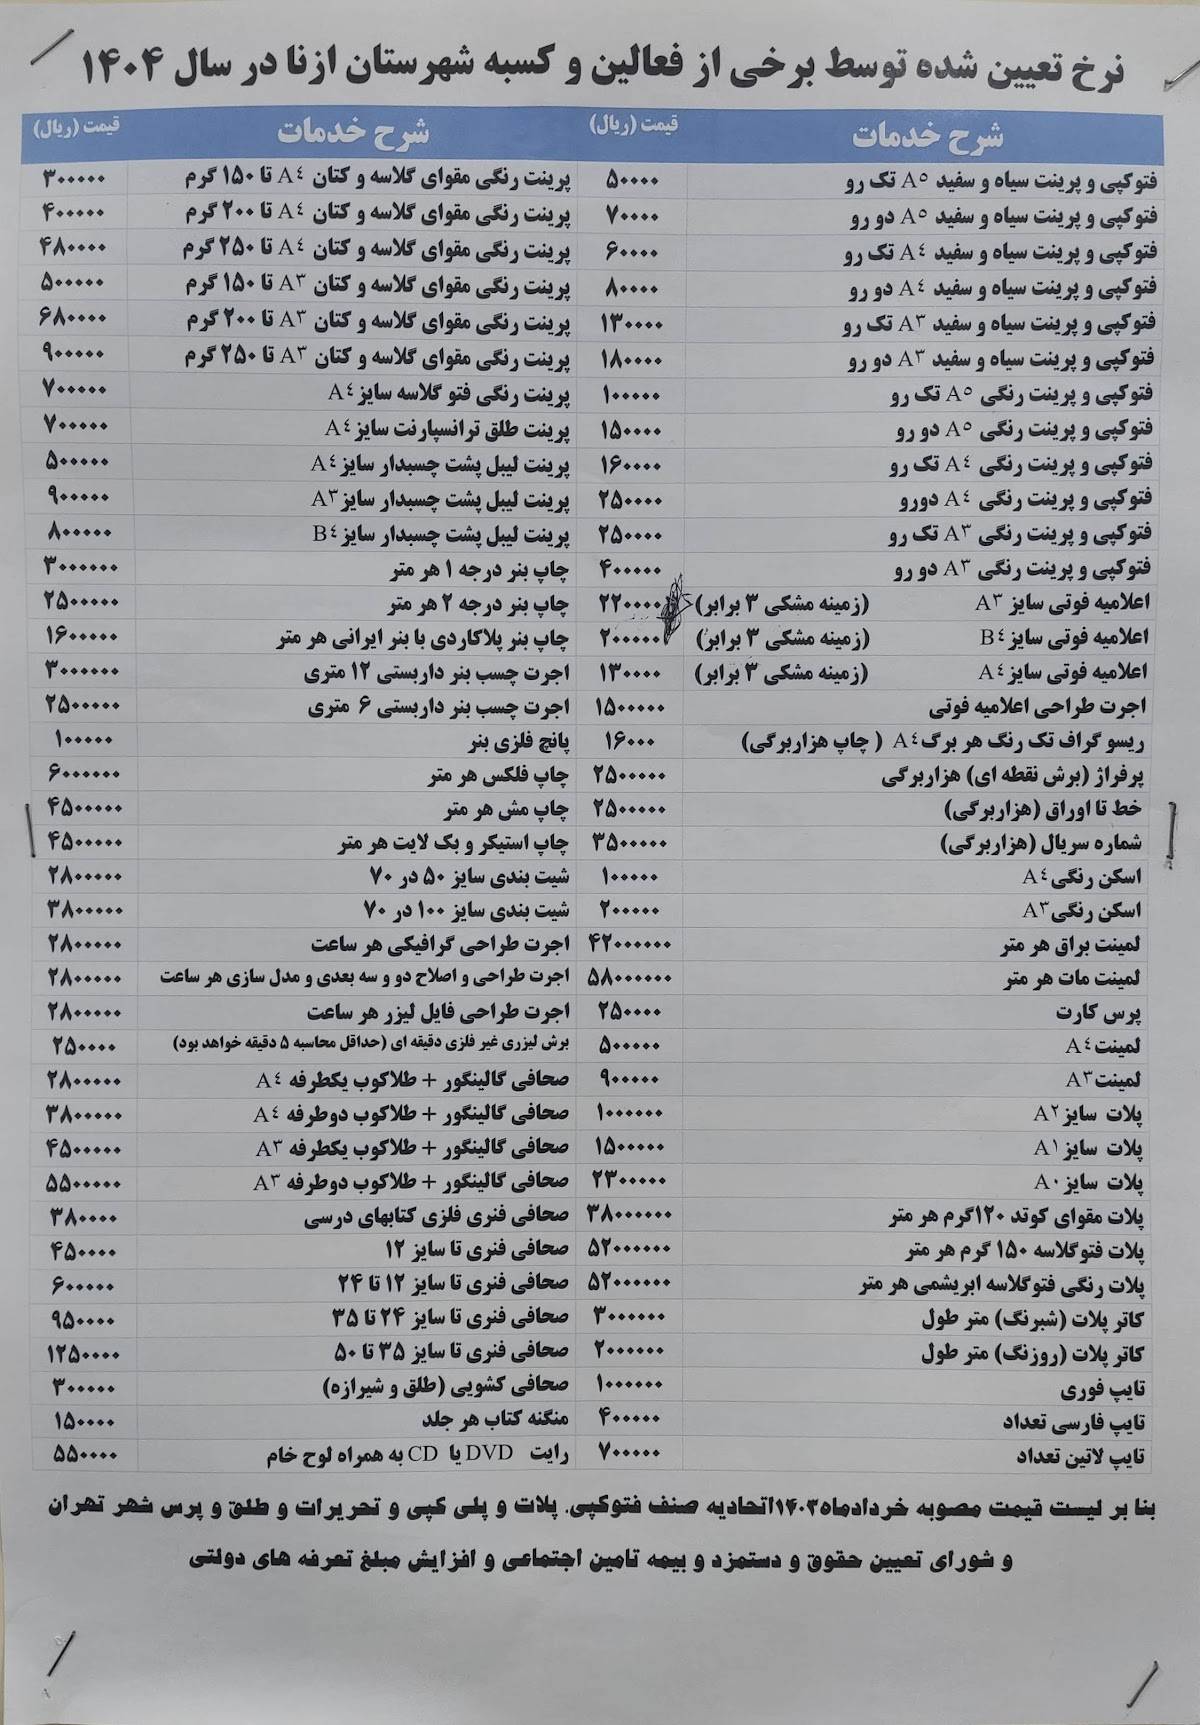 نرخ تعیین شده توسط برخی از فعالین و کسبه شهرستان ازنا در سال ۱۴۰۴
شرح خدمات قیمت (ریال) شرح خدمات قیمت (ریال)
فتوکپی و پرینت سیاه و سفید A۵ تک رو ۵۰۰۰۰ پرینت رنگی مقوای گلاسه و کتان A۴ تا ۱۵۰ گرم ۳۰۰۰۰۰
فتوکپی و پرینت سیاه و سفید A۵ دو رو ۷۰۰۰۰ پرینت رنگی مقوای گلاسه و کتان A۴ تا ۲۰۰ گرم ۴۰۰۰۰۰
فتوکپی و پرینت سیاه و سفید A۴ تک رو ۶۰۰۰۰ پرینت رنگی مقوای گلاسه و کتان A۴ تا ۲۵۰ گرم ۴۸۰۰۰۰
فتوکپی و پرینت سیاه و سفید A۴ دو رو ۸۰۰۰۰ پرینت رنگی مقوای گلاسه و کتان A۳ تا ۱۵۰ گرم ۵۰۰۰۰۰
فتوکپی و پرینت سیاه و سفید A۳ تک رو ۱۳۰۰۰۰ پرینت رنگی مقوای گلاسه و کتان A۳ تا ۲۰۰ گرم ۶۸۰۰۰۰
فتوکپی و پرینت سیاه و سفید A۳ دو رو ۱۸۰۰۰۰ پرینت رنگی مقوای گلاسه و کتان A۳ تا ۲۵۰ گرم ۹۰۰۰۰۰
فتوکپی و پرینت رنگی A۵ تک رو ۱۰۰۰۰۰ پرینت رنگی فتو گلاسه سایز A۴ ۷۰۰۰۰۰
فتوکپی و پرینت رنگی A۵ دو رو ۱۵۰۰۰۰ پرینت طلق ترانسپارنت سایز A۴ ۷۰۰۰۰۰
فتوکپی و پرینت رنگی A۴ تک رو ۱۶۰۰۰۰ پرینت لیبل پشت چسبدار سایز A۴ ۵۰۰۰۰۰
فتوکپی و پرینت رنگی A۴ دورو ۲۵۰۰۰۰ پرینت لیبل پشت چسبدار سایز A۳ ۹۰۰۰۰۰
فتوکپی و پرینت رنگی A۳ تک رو ۲۵۰۰۰۰ پرینت لیبل پشت چسبدار سایز B۴ ۸۰۰۰۰۰
فتوکپی و پرینت رنگی A۳ دو رو ۴۰۰۰۰۰ چاپ بنر درجه ۱ هر متر ۳۰۰۰۰۰۰
اعلامیه فوتی سایز A۳ (زمینه مشکی ۳ برابر) ۲۲۰۰۰۰ چاپ بنر درجه ۲ هر متر ۲۵۰۰۰۰۰
اعلامیه فوتی سایز B۴ (زمینه مشکی ۳ برابر) ۲۰۰۰۰۰ چاپ بنر پلاکاردی با بنر ایرانی هر متر ۱۶۰۰۰۰۰
اعلامیه فوتی سایز A۴ (زمینه مشکی ۳ برابر) ۱۳۰۰۰۰ اجرت چسب بنر داربستی ۱۲ متری ۳۰۰۰۰۰۰
اجرت طراحی اعلامیه فوتی ۱۵۰۰۰۰۰ اجرت چسب بنر داربستی ۶ متری ۲۵۰۰۰۰۰
ریسو گراف تک رنگ هر برگ A۴ ( چاپ هزاربرگی) ۱۶۰۰۰ پانچ فلزی بنر ۱۰۰۰۰۰
پرفراژ (برش نقطه ای) هزاربرگی ۲۵۰۰۰۰۰ چاپ فلکس هر متر ۶۰۰۰۰۰۰
خط تا اوراق (هزاربرگی) ۲۵۰۰۰۰۰ چاپ مش هر متر ۴۵۰۰۰۰۰
شماره سریال (هزاربرگی) ۳۵۰۰۰۰۰ چاپ استیکر و بک لایت هر متر ۴۵۰۰۰۰۰
اسکن رنگی A۴ ۱۰۰۰۰۰ شیت بندی سایز ۵۰ در ۷۰ ۲۸۰۰۰۰۰
اسکن رنگی A۳ ۲۰۰۰۰۰ شیت بندی سایز ۱۰۰ در ۷۰ ۳۸۰۰۰۰۰
لمینت براق هر متر ۴۲۰۰۰۰۰۰ اجرت طراحی گرافیکی هر ساعت ۲۸۰۰۰۰۰
لمینت مات هر متر ۵۸۰۰۰۰۰۰ اجرت طراحی و اصلاح دو و سه بعدی و مدل سازی هر ساعت ۲۸۰۰۰۰۰
پرس کارت ۲۵۰۰۰۰ اجرت طراحی فایل لیزر هر ساعت ۲۸۰۰۰۰۰
لمینت A۴ ۵۰۰۰۰۰ برش لیزری غیر فلزی دقیقه ای (حداقل محاسبه ۵ دقیقه خواهد بود) ۲۵۰۰۰۰
لمینت A۳ ۹۰۰۰۰۰ صحافی گالینگور + طلاکوب یکطرفه A۴ ۲۸۰۰۰۰۰
پلات سایز A۲ ۱۰۰۰۰۰۰ صحافی گالینگور + طلاکوب دوطرفه A۴ ۳۸۰۰۰۰۰
پلات سایز A۱ ۱۵۰۰۰۰۰ صحافی گالینگور + طلاکوب یکطرفه A۳ ۴۵۰۰۰۰۰
پلات سایز A۰ ۲۳۰۰۰۰۰ صحافی گالینگور + طلاکوب دوطرفه A۳ ۵۵۰۰۰۰۰
پلات مقوای کوتد ۱۲۰گرم هر متر ۳۸۰۰۰۰۰۰ صحافی فنری فلزی کتابهای درسی ۳۸۰۰۰۰
پلات فتوگلاسه ۱۵۰ گرم هر متر ۵۲۰۰۰۰۰۰ صحافی فنری تا سایز ۱۲ ۴۵۰۰۰۰
پلات رنگی فتوگلاسه ابریشمی هر متر ۵۲۰۰۰۰۰۰ صحافی فنری تا سایز ۱۲ تا ۲۴ ۶۰۰۰۰۰
کاتر پلات (شبرنگ) متر طول ۳۰۰۰۰۰۰ صحافی فنری تا سایز ۲۴ تا ۳۵ ۹۵۰۰۰۰
کاتر پلات (روزنگ) متر طول ۲۰۰۰۰۰۰ صحافی فنری تا سایز ۳۵ تا ۵۰ ۱۲۵۰۰۰۰
تایپ فوری ۱۰۰۰۰۰۰ صحافی کشویی (طلق و شیرازه) ۳۰۰۰۰۰
تایپ فارسی تعداد ۴۰۰۰۰۰ منگنه کتاب هر جلد ۱۵۰۰۰۰
تایپ لاتین تعداد ۷۰۰۰۰۰ رایت DVD یا CD به همراه لوح خام ۵۵۰۰۰۰
بنا بر لیست قیمت مصوبه خردادماه۱۴۰۳اتحادیه صنف فتوکپی، پلات و پلی کپی و تحریرات و طلق و پرس شهر تهران
و شورای تعیین حقوق و دستمزد و بیمه تامین اجتماعی و افزایش مبلغ تعرفه های دولتی